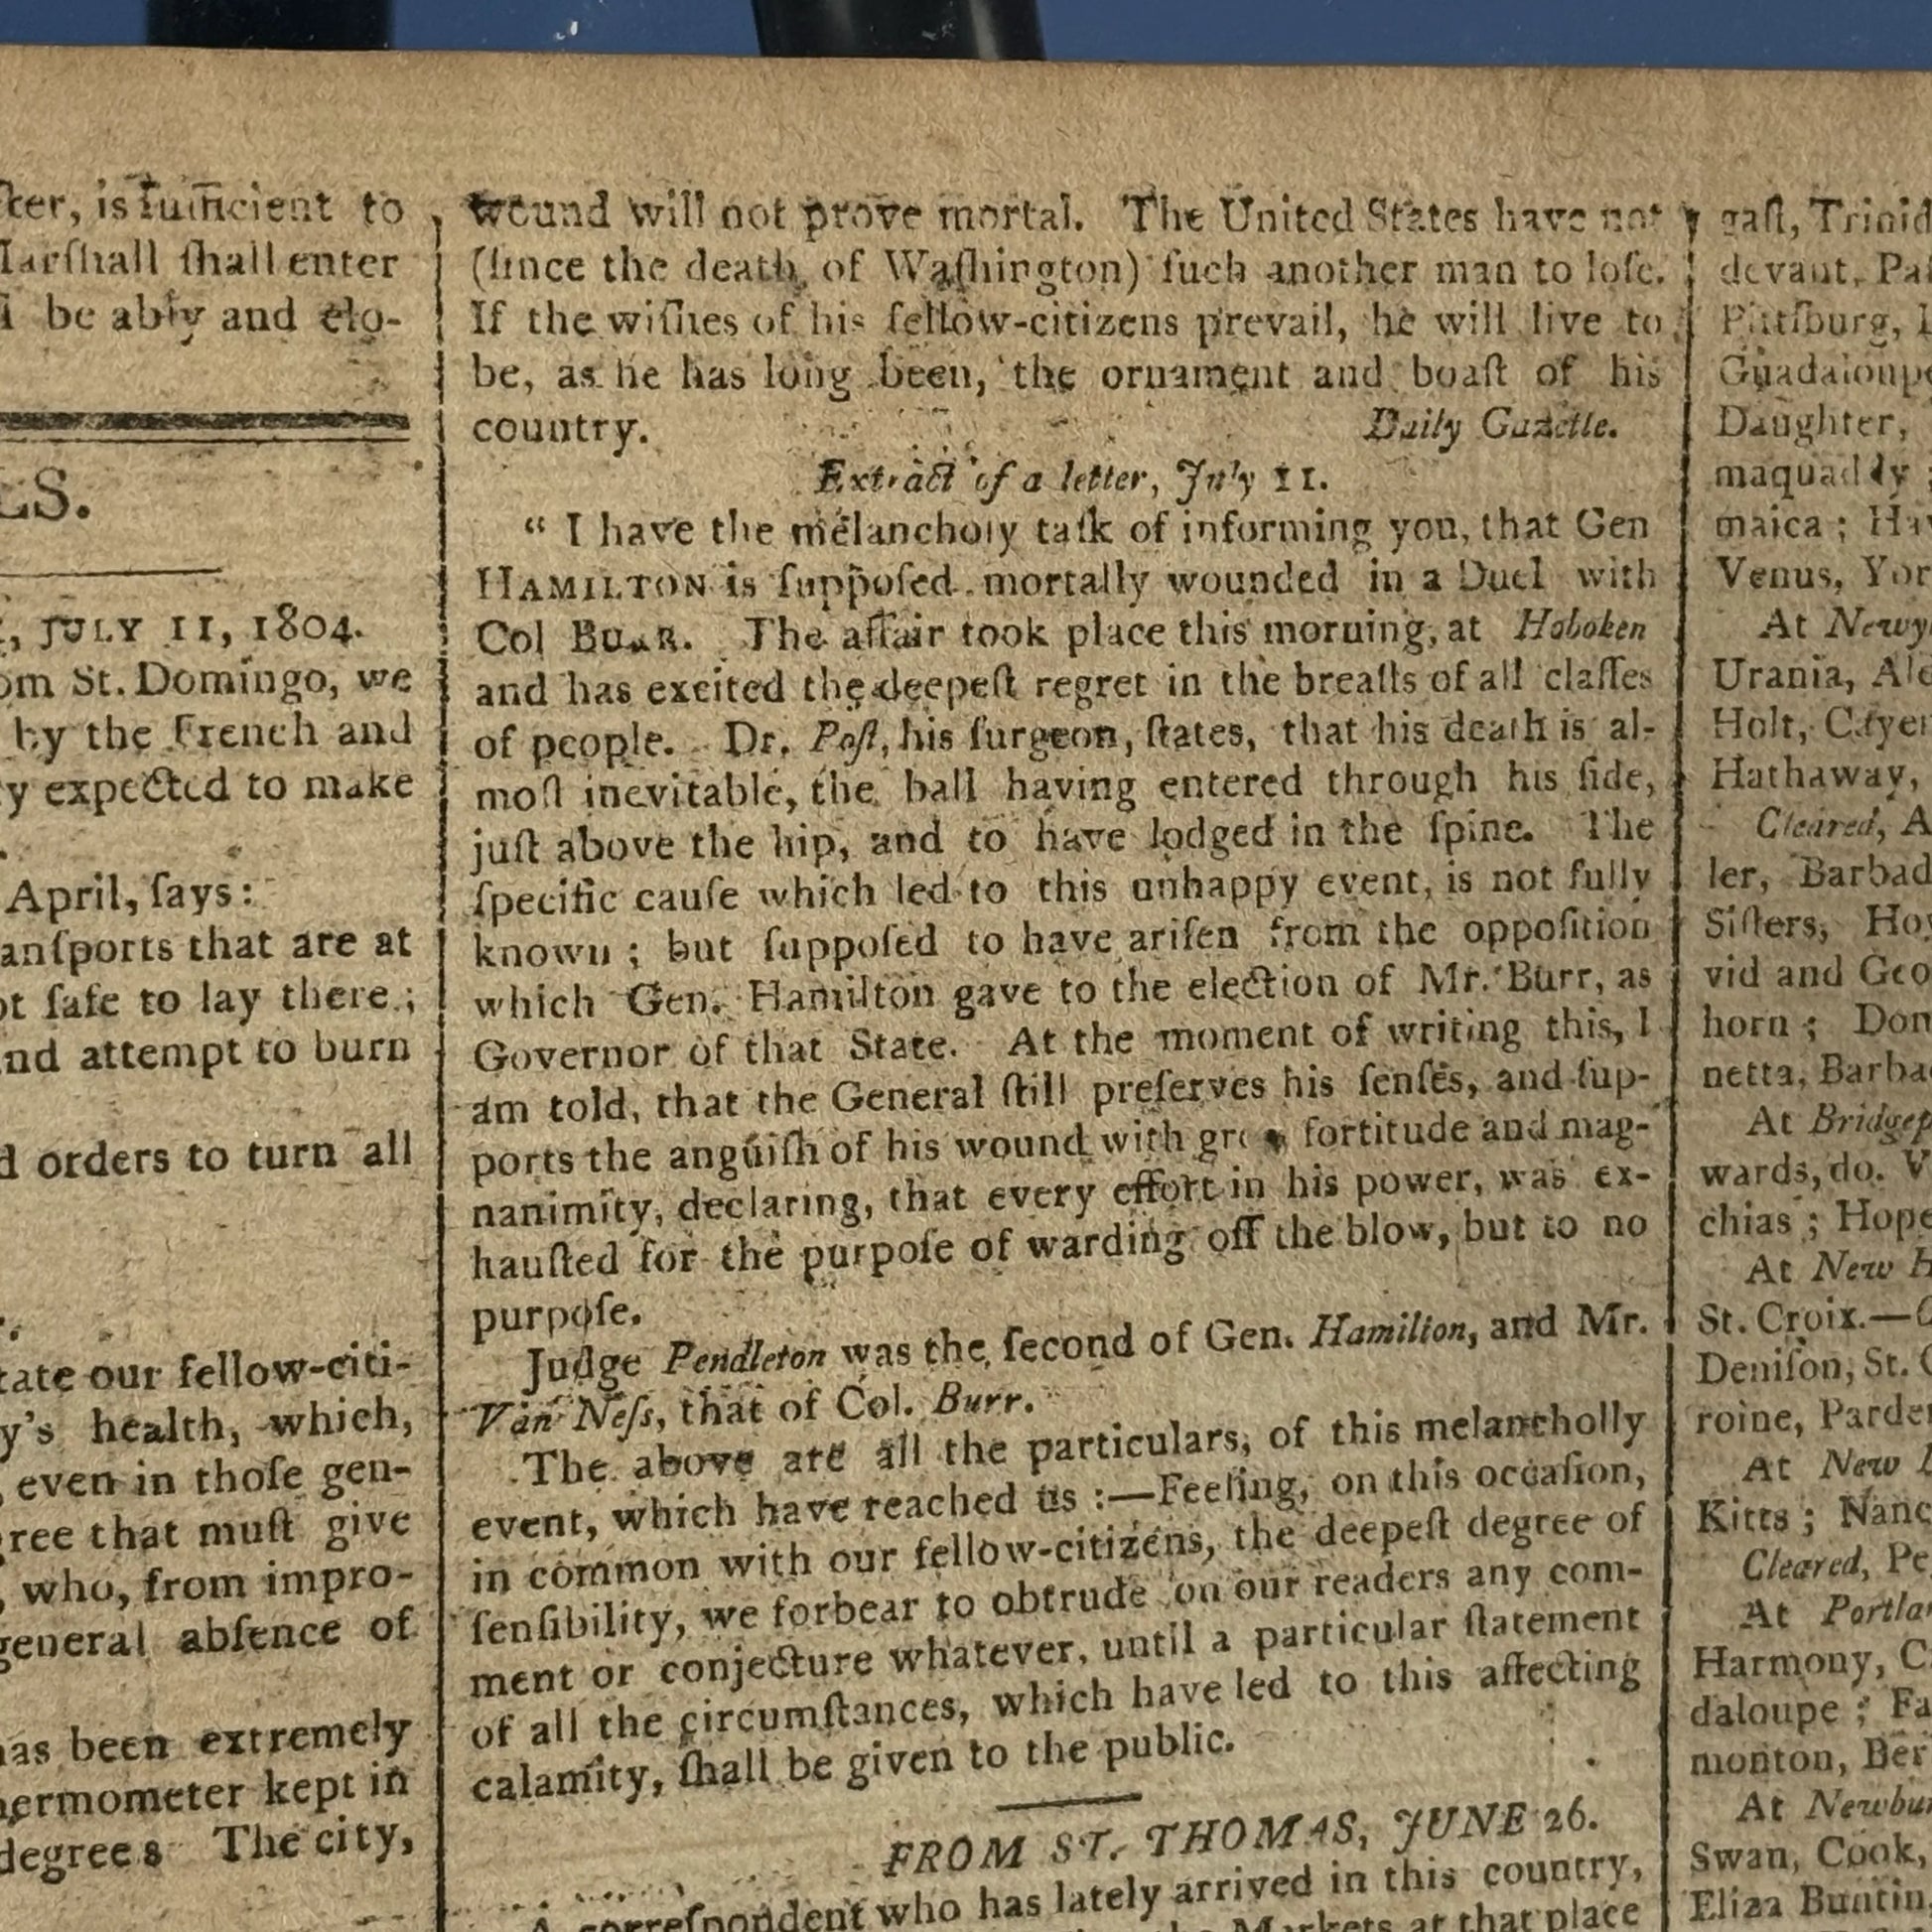 ſter, is ſufficient to
Marſhall ſhall enter
be ably and elo-
LS.
JULY 11, 1804.
om St. Domingo, we
by the French and
y expected to make
April, ſays:
anſports that are at
ot ſafe to lay there;
nd attempt to burn
d orders to turn all
tate our fellow-citi-
y's health, which,
even in thoſe gen-
gree that muſt give
, who, from impro-
general abſence of
has been extremely
hermometer kept in
degrees The city,
wound will not prove mortal. The United States have not
(ſince the death of Waſhington) ſuch another man to loſe.
If the wiſhes of his fellow-citizens prevail, he will live to
be, as he has long been, the ornament and boaſt of his
country. Daily Gazette.
Extract of a letter, July 11.
“ I have the melancholy taſk of informing you, that Gen
HAMILTON is ſuppoſed mortally wounded in a Duel with
Col BURR. The affair took place this morning, at Hoboken
and has excited the deepeſt regret in the breaſts of all claſſes
of people. Dr. Poſt, his ſurgeon, ſtates, that his death is al-
moſt inevitable, the ball having entered through his ſide,
juſt above the hip, and to have lodged in the ſpine. The
ſpecific cauſe which led to this unhappy event, is not fully
known ; but ſuppoſed to have ariſen from the oppoſition
which Gen. Hamilton gave to the election of Mr. Burr, as
Governor of that State. At the moment of writing this, I
am told, that the General ſtill preſerves his ſenſes, and ſup-
ports the anguiſh of his wound with fortitude and mag-
nanimity, declaring, that every effort in his power, was ex-
hauſted for the purpoſe of warding off the blow, but to no
purpoſe.
Judge Pendleton was the ſecond of Gen. Hamilton, and Mr.
Van Neſs, that of Col. Burr.
The above are all the particulars, of this melancholly
event, which have reached us :—Feeling, on this occaſion,
in common with our fellow-citizens, the deepeſt degree of
ſenſibility, we forbear to obtrude on our readers any com-
ment or conjecture whatever, until a particular ſtatement
of all the circumſtances, which have led to this affecting
calamity, ſhall be given to the public.
FROM ST. THOMAS, JUNE 26.
A correſpondent who has lately arrived in this country,
Markets at that place
gaſt, Trinid
devant, Paſ
Pittſburg, 
Guadaloupe
Daughter,
maquaddy ;
maica ; Hav
Venus, Yor
At Newy
Urania, Ale
Holt, Cayen
Hathaway,
Cleared, A
ler, Barbad
Siſters, Hoy
vid and Geo
horn ; Don
netta, Barba
At Bridgep
wards, do. V
chias ; Hope
At New H
St. Croix.—
Deniſon, St. C
roine, Parde
At New
Kitts ; Nanc
Cleared, Pe
At Portla
Harmony, C
daloupe ; Fa
monton, Ber
At Newbu
Swan, Cook,
Eliza Buntin